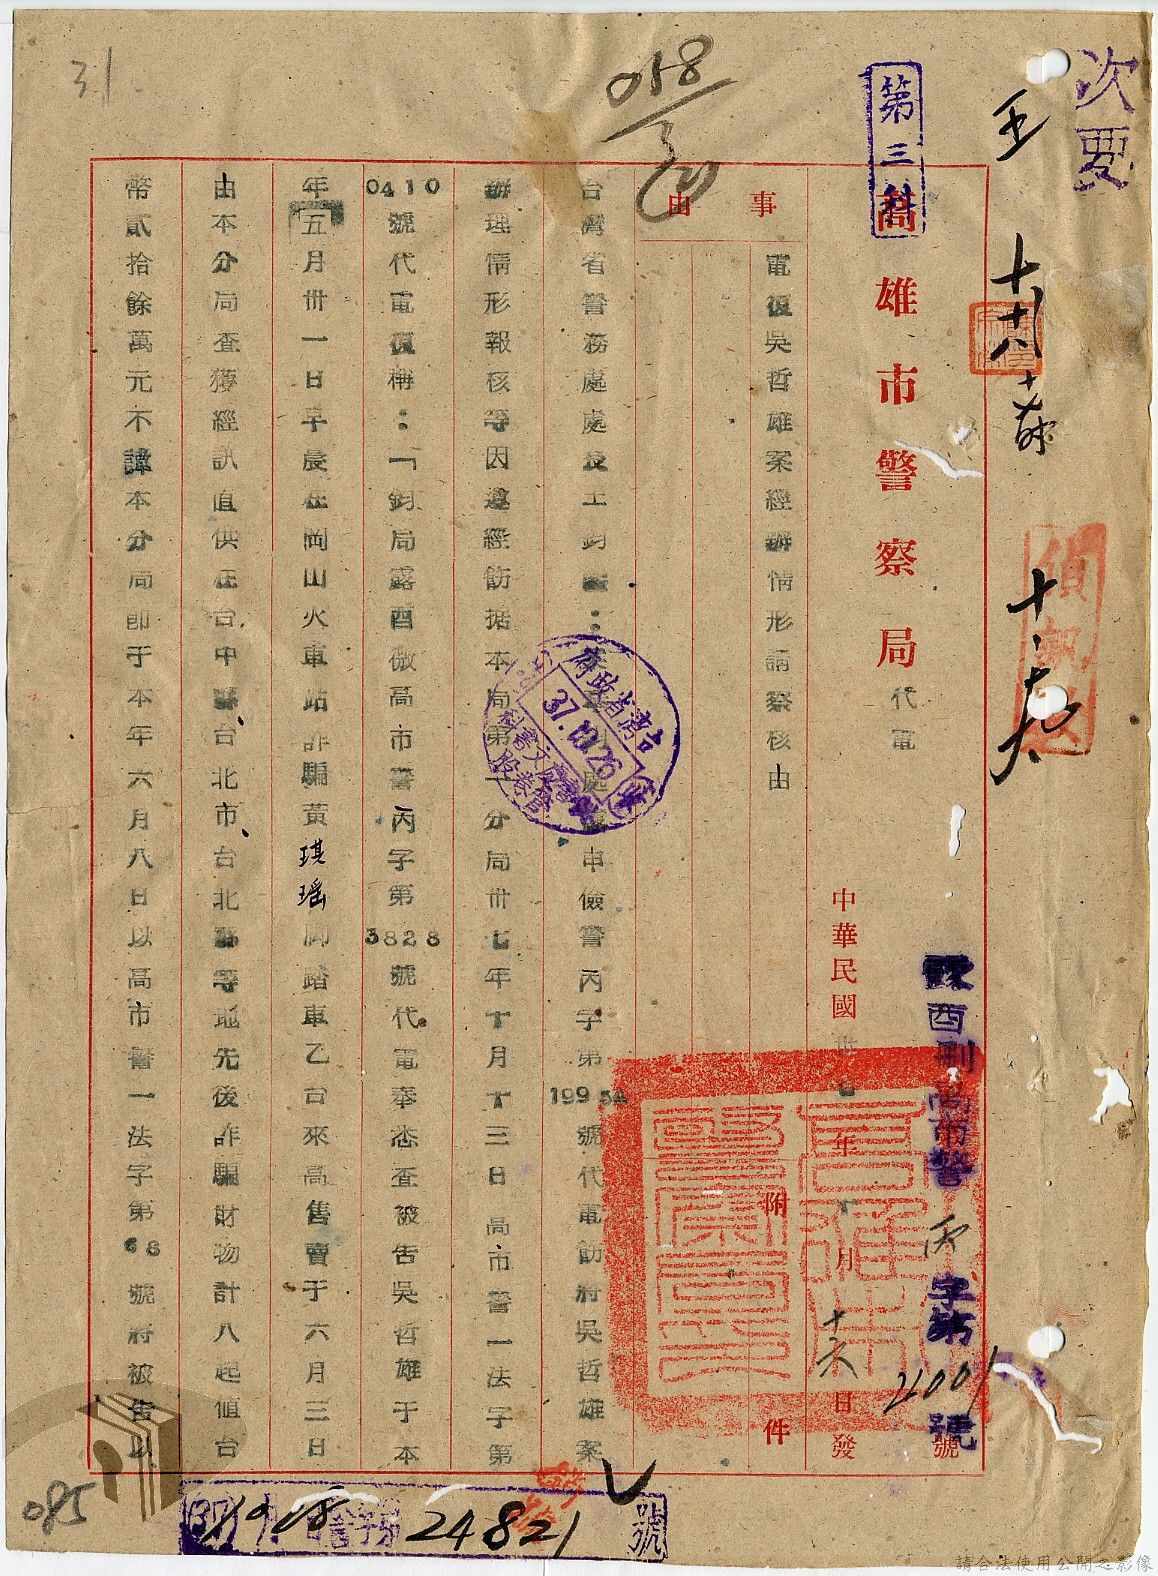 次要
王
第三科
31
058
高雄市警察局
代電
中華民國卅七年十月十六日發
附件
酉 高市警丙字第21001號
事由
電復吳哲雄案經辦情形請察核由
台灣省警務處處長王鈞 : 申儉警丙字第19954號代電飭將吳哲雄案
辦理情形報核等因遵經飭据本局第一分局卅七年十月十三日高市警一法字第
0410號代電復稱:「鈞局露酉微高市警丙字第3828號代電奉悉查被告吳哲雄于本
年五月卅一日早晨在岡山火車站詐騙黃琪瑶脚踏車乙台來高售賣于六月三日
由本分局查獲經訊直供在台中縣台北市台北縣等地先後詐騙財物計八起值台
幣貳拾餘萬元不諱本分局即于本年六月八日以高市警一法字第68號將被告以
台灣省政府
37.10.26
24821號
085
請合法使用公開之影像